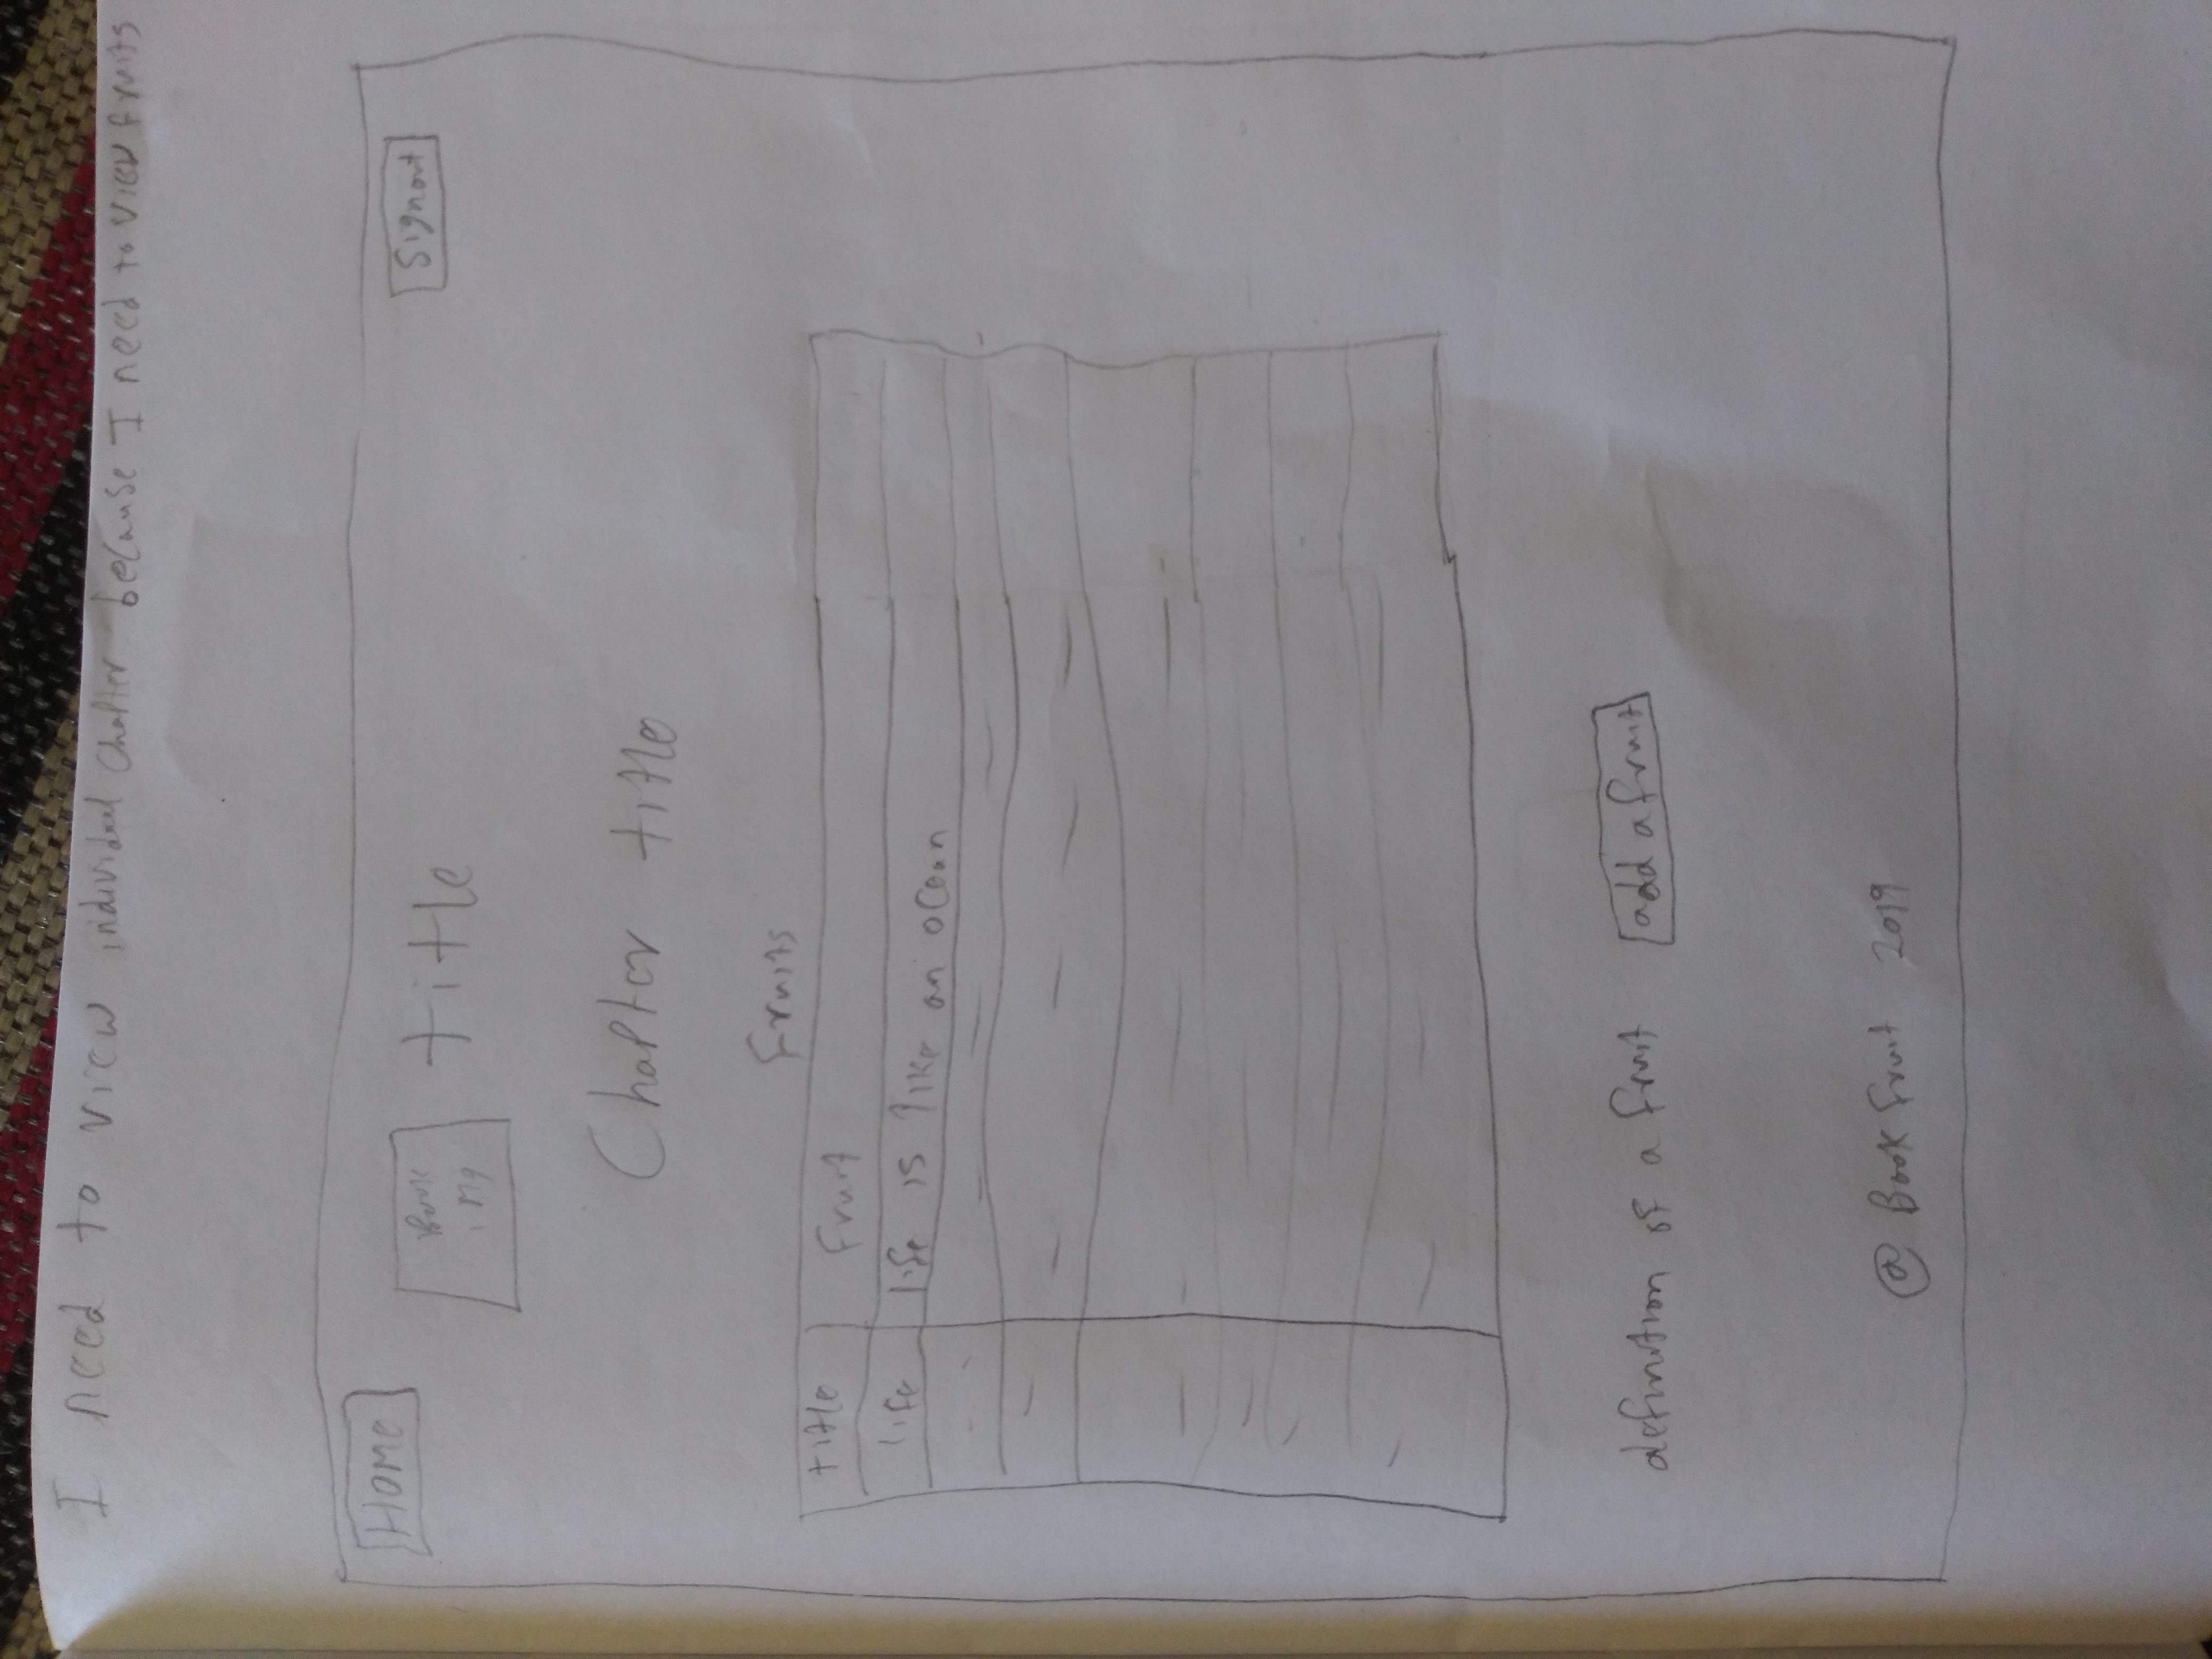 I need to view individual Chapter because I need to view fruits
Home
Book
img
title
Signout
Chapter title
fruits
title fruit
life life is like an ocean
definition of a fruit add a fruit
@ Book fruit 2019